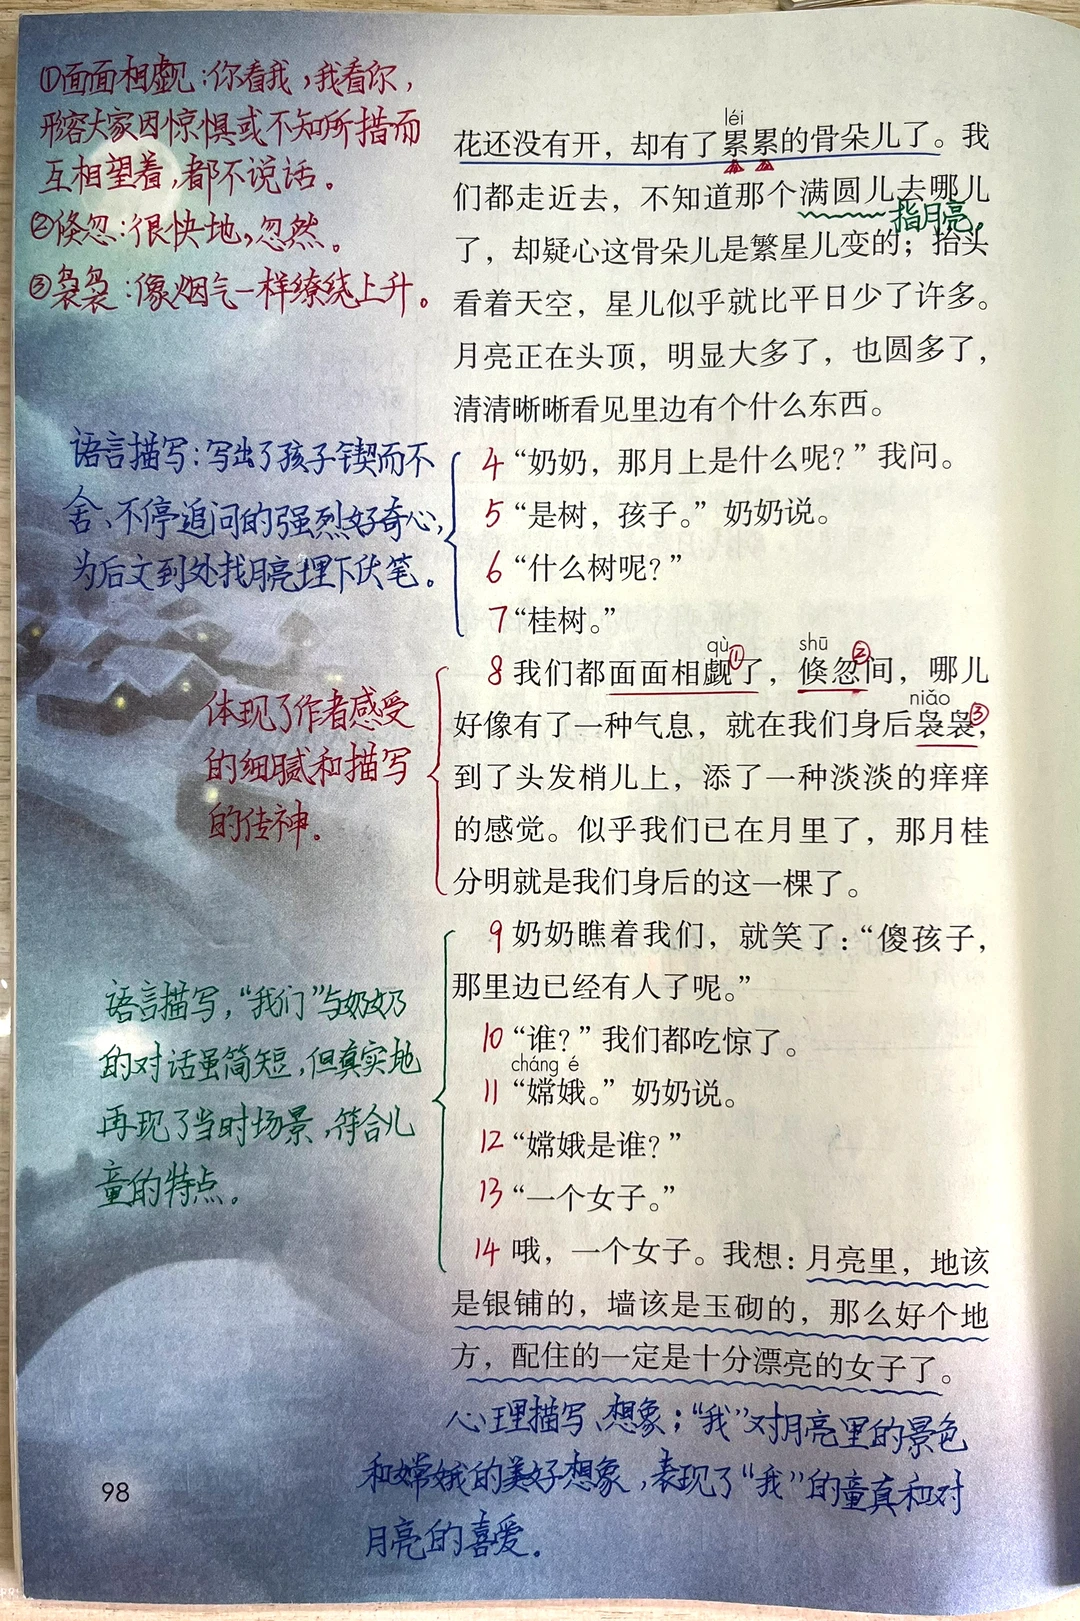 ①面面相觑:你看我,我看你,
形容大家因惊惧或不知所措而
互相望着,都不说话。
②倏忽:很快地,忽然。
③袅袅:像烟气一样缭绕上升。
léi
花还没有开，却有了累累的骨朵儿了。我
们都走近去，不知道那个满圆儿去哪儿
指月亮。
了，却疑心这骨朵儿是繁星儿变的；抬头
看着天空，星儿似乎就比平日少了许多。
月亮正在头顶，明显大多了，也圆多了，
清清晰晰看见里边有个什么东西。
语言描写:写出了孩子锲而不
舍、不停追问的强烈好奇心,
为后文到处找月亮埋下伏笔。
4 “奶奶，那月上是什么呢？”我问。
5 “是树，孩子。”奶奶说。
6 “什么树呢？”
7 “桂树。”
qù① shū ②
8 我们都面面相觑了，倏忽间，哪儿
niǎo ③
好像有了一种气息，就在我们身后袅袅，
到了头发梢儿上，添了一种淡淡的痒痒
的感觉。似乎我们已在月里了，那月桂
分明就是我们身后的这一棵了。
体现了作者感受
的细腻和描写
的传神。
9 奶奶瞧着我们，就笑了：“傻孩子，
那里边已经有人了呢。”
10 “谁？”我们都吃惊了。
cháng é
11 “嫦娥。”奶奶说。
12 “嫦娥是谁？”
13 “一个女子。”
语言描写,“我们”与奶奶
的对话虽简短,但真实地
再现了当时场景,符合儿
童的特点。
14 哦，一个女子。我想：月亮里，地该
是银铺的，墙该是玉砌的，那么好个地
方，配住的一定是十分漂亮的女子了。
心理描写、想象;“我”对月亮里的景色
和嫦娥的美好想象,表现了“我”的童真和对
月亮的喜爱。
98